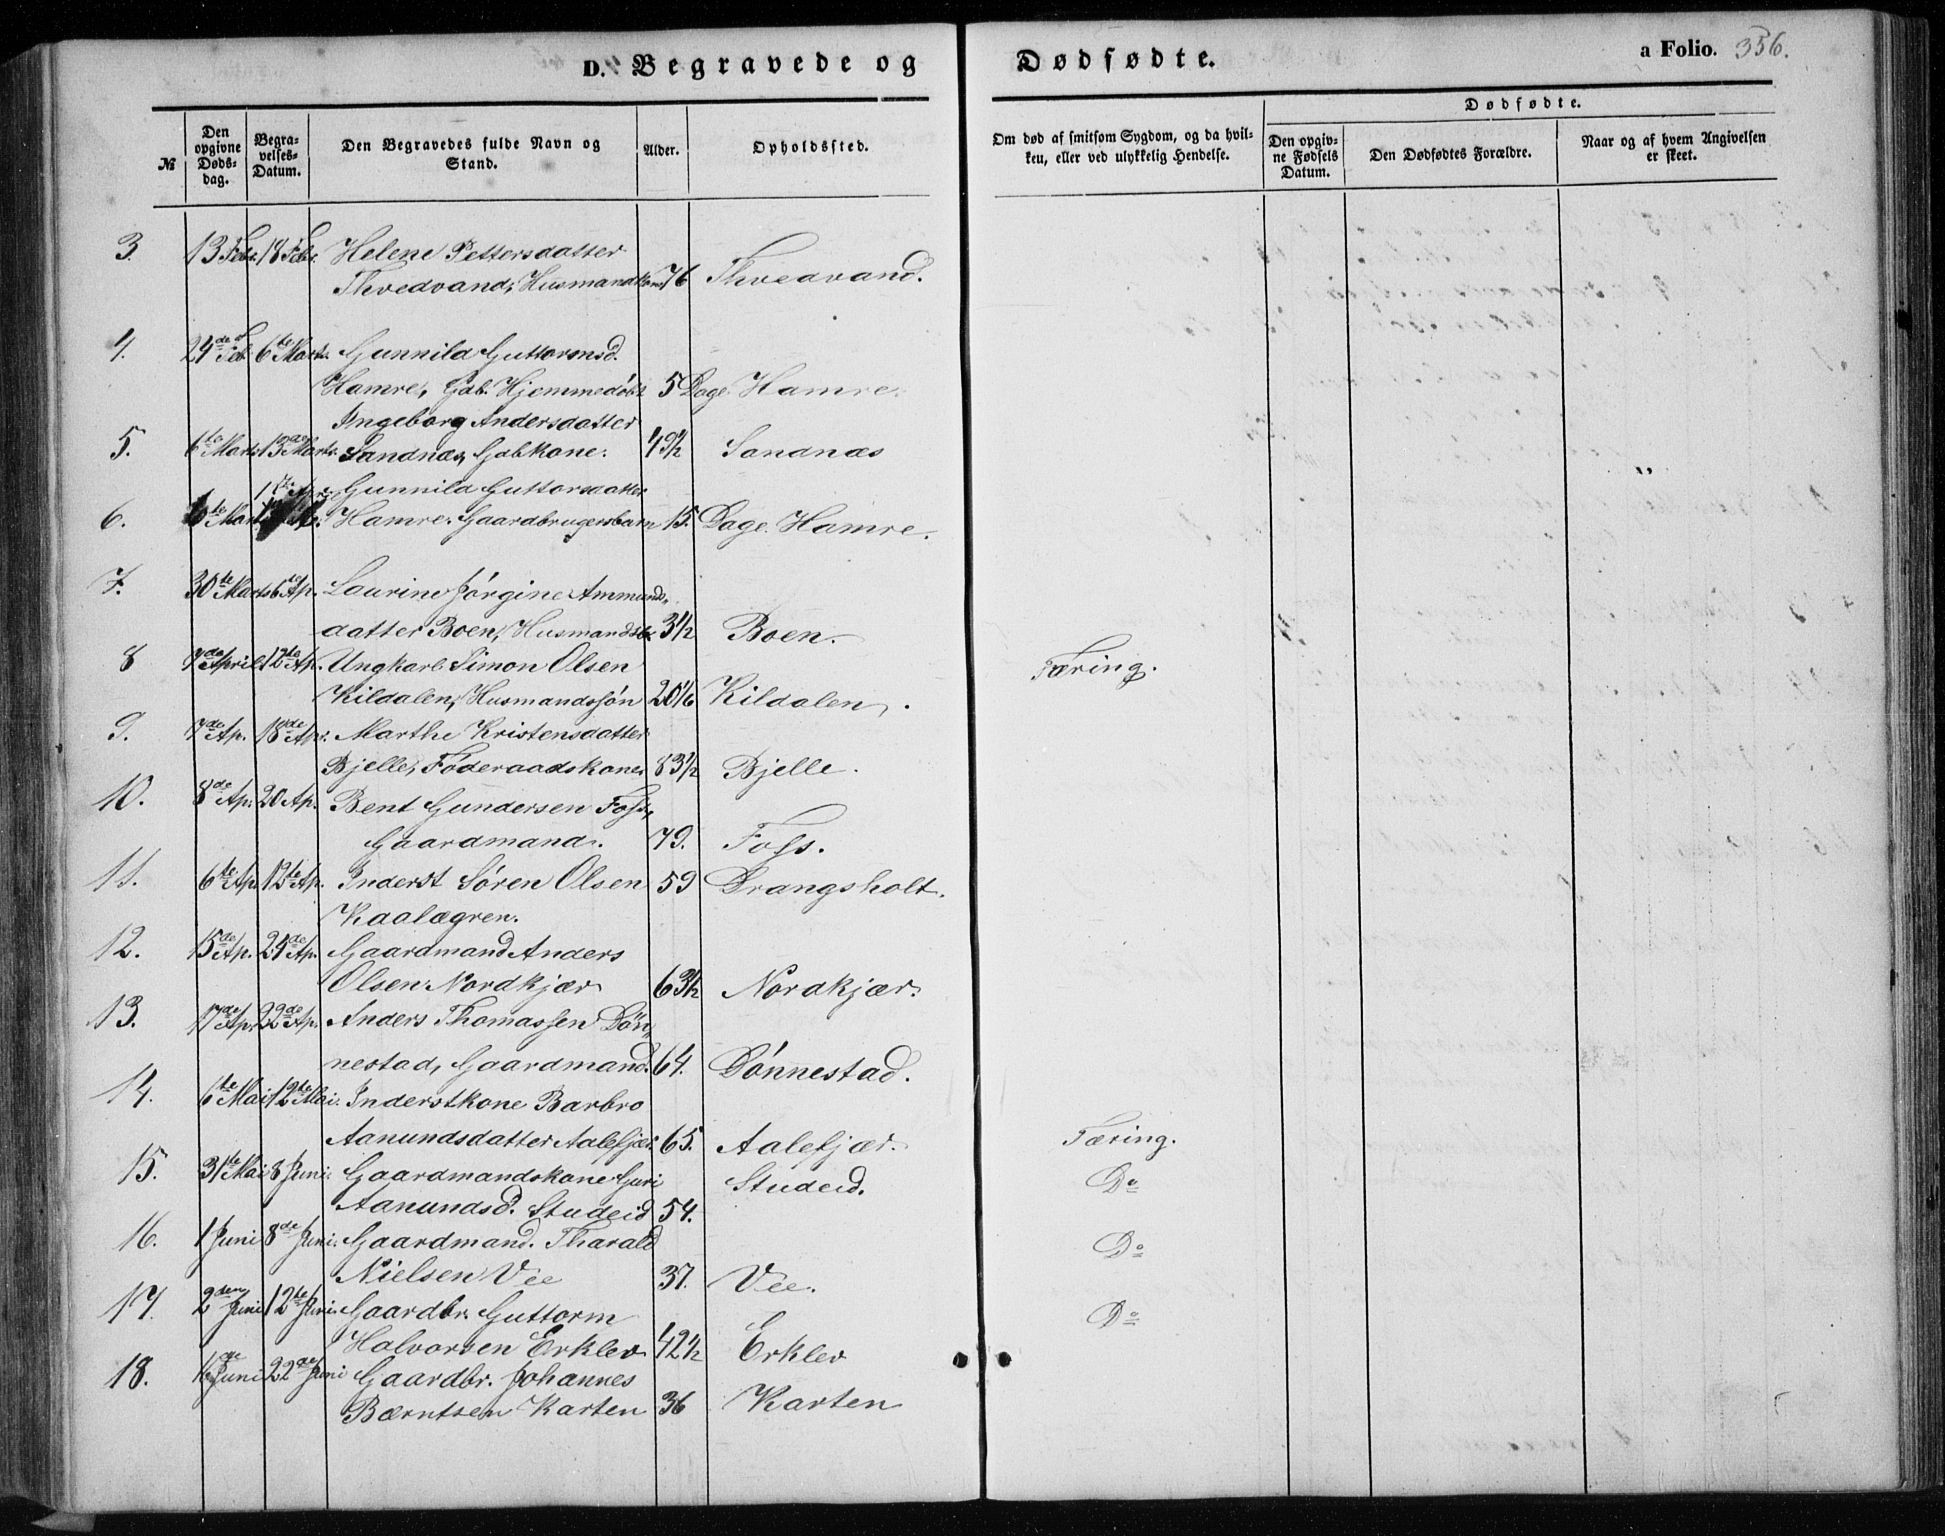 D. Begravede og Dødfødte. a Folio. 356.
№ Den opgivne Døds-dag. Begra-velses-Datum. Den Begravedes fulde Navn og Stand. Alder. Opholdssted. Om død af smitsom Sygdom, og da hvil-ken, eller ved ulykkelig Hendelse. Dødfødte. Den opgiv-ne Fødsels Datum. Den Dødfødtes Forældre. Naar og af hvem Angivelsen er skeet.
3. 13 Feb. 18 Feb. Helene Pettersdatter
Thvedvand, Husmandkone 76 Thvedvand.
4. 24de Feb. 6te Marts. Gunnild Guttormsd.
Hamre, Gdb. Hjemmedøbt 5 Dage. Hamre.
Ingeborg Andersdatter
5. 6te Marts 13de Marts. Sandnæs, Gdbkone. 49½ Sandnæs
1ste Apr. Gunnild Guttorsdatter
6. 6te Marts Hamre. Gaardbrugersbarn 15. Dage. Hamre.
7. 30te Marts 6de Ap. Laurine Jörgine Ammunds-
datter Boen, Husmandsb. 3½ Boen.
8 7de April 12te Ap. Ungkarl Simon Olsen Færing.
Kildalen, Husmandssön 20 1/6 Kildalen.
9. 7de Ap. 18de Apr. Marthe Kristensdatter
Bjelle, Föderaadskone 83½ Bjelle.
10. 8de Ap. 20 Ap. Bent Gundersen Foss,
Gaardmand. 79. Foss.
11. 6te Ap. 12te Ap. Inderst Sören Olsen 59 Drangsholt.
Kaalagren.
12. 15de Ap. 24de Ap. Gaardmand Anders
Olsen Nordkjær 63½ Nordkjær.
13. 17de Apr. 22de Ap. Anders Thomassen Dön-
nestad, Gaardmand. 64. Dönnestad.
14. 6te Mai 12te Mai. Inderstkone Barbro
Aanundsdatter Aalefjær. 65. Aalefjær. Færing.
15. 31te Mai 8 Juni. Gaardmandskone Guri Studeid. Do
Aanundsd. Studeid 54.
16. 1 Juni 8de Juni. Gaardmand. Tharald Do
Nielsen Vee 37. Vee.
17. 2den Juni 12te Juni. Gaardbr. Guttorm Do
Halvorsen Erklev 42½ Erklev
18. 16de Juni 22de Juni Gaardbr. Johannes
Bærntsen Karten 36 Karten